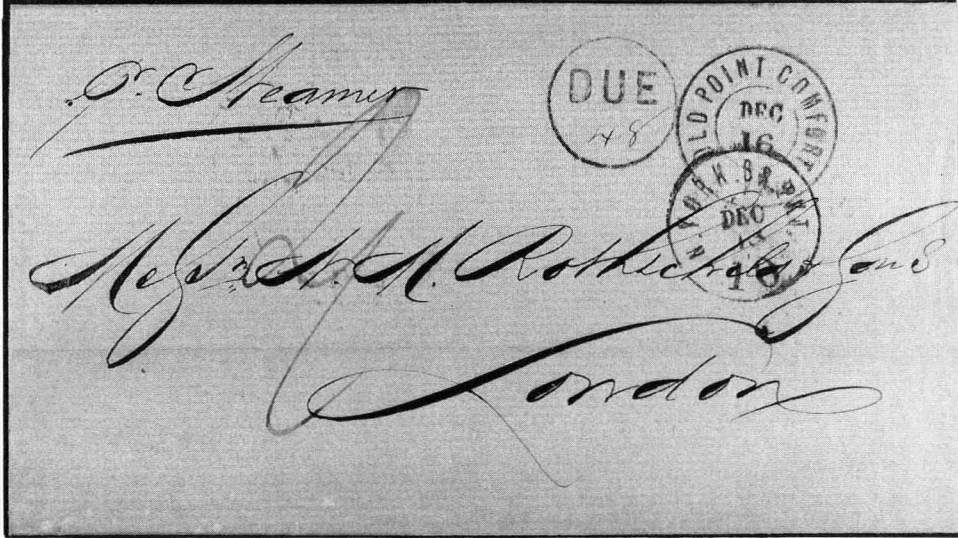 pr. Steamer
DUE
48
OLD POINT COMFORT
DEC
16
N. YORK. BR. PKT.
DEC
16
Messrs N. M. Rothschild & Sons
London